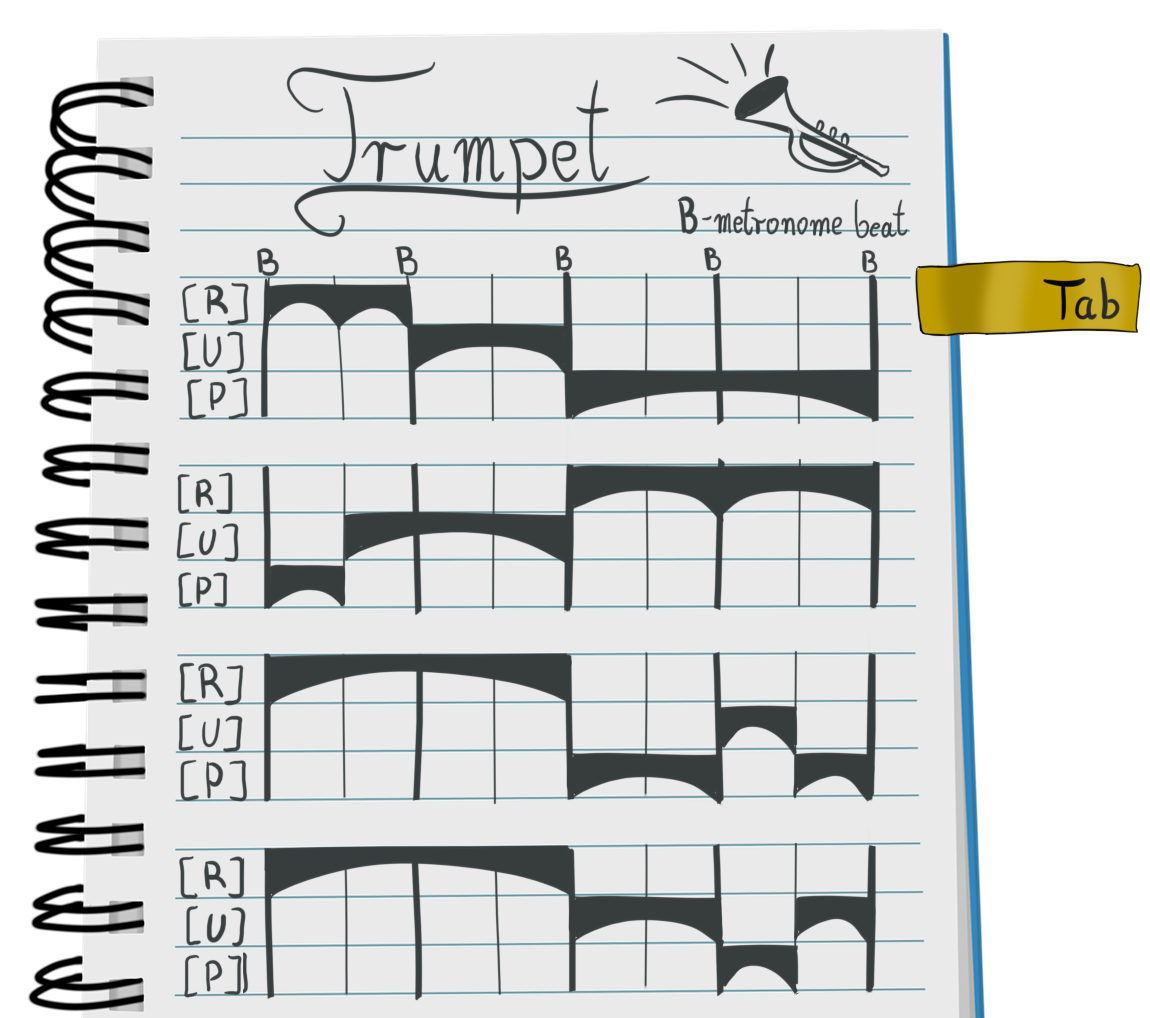 Trumpet
B-metronome beat
B B B B B
Tab
[R]
[U]
[P]
[R]
[U]
[P]
[R]
[U]
[P]
[R]
[U]
[P]